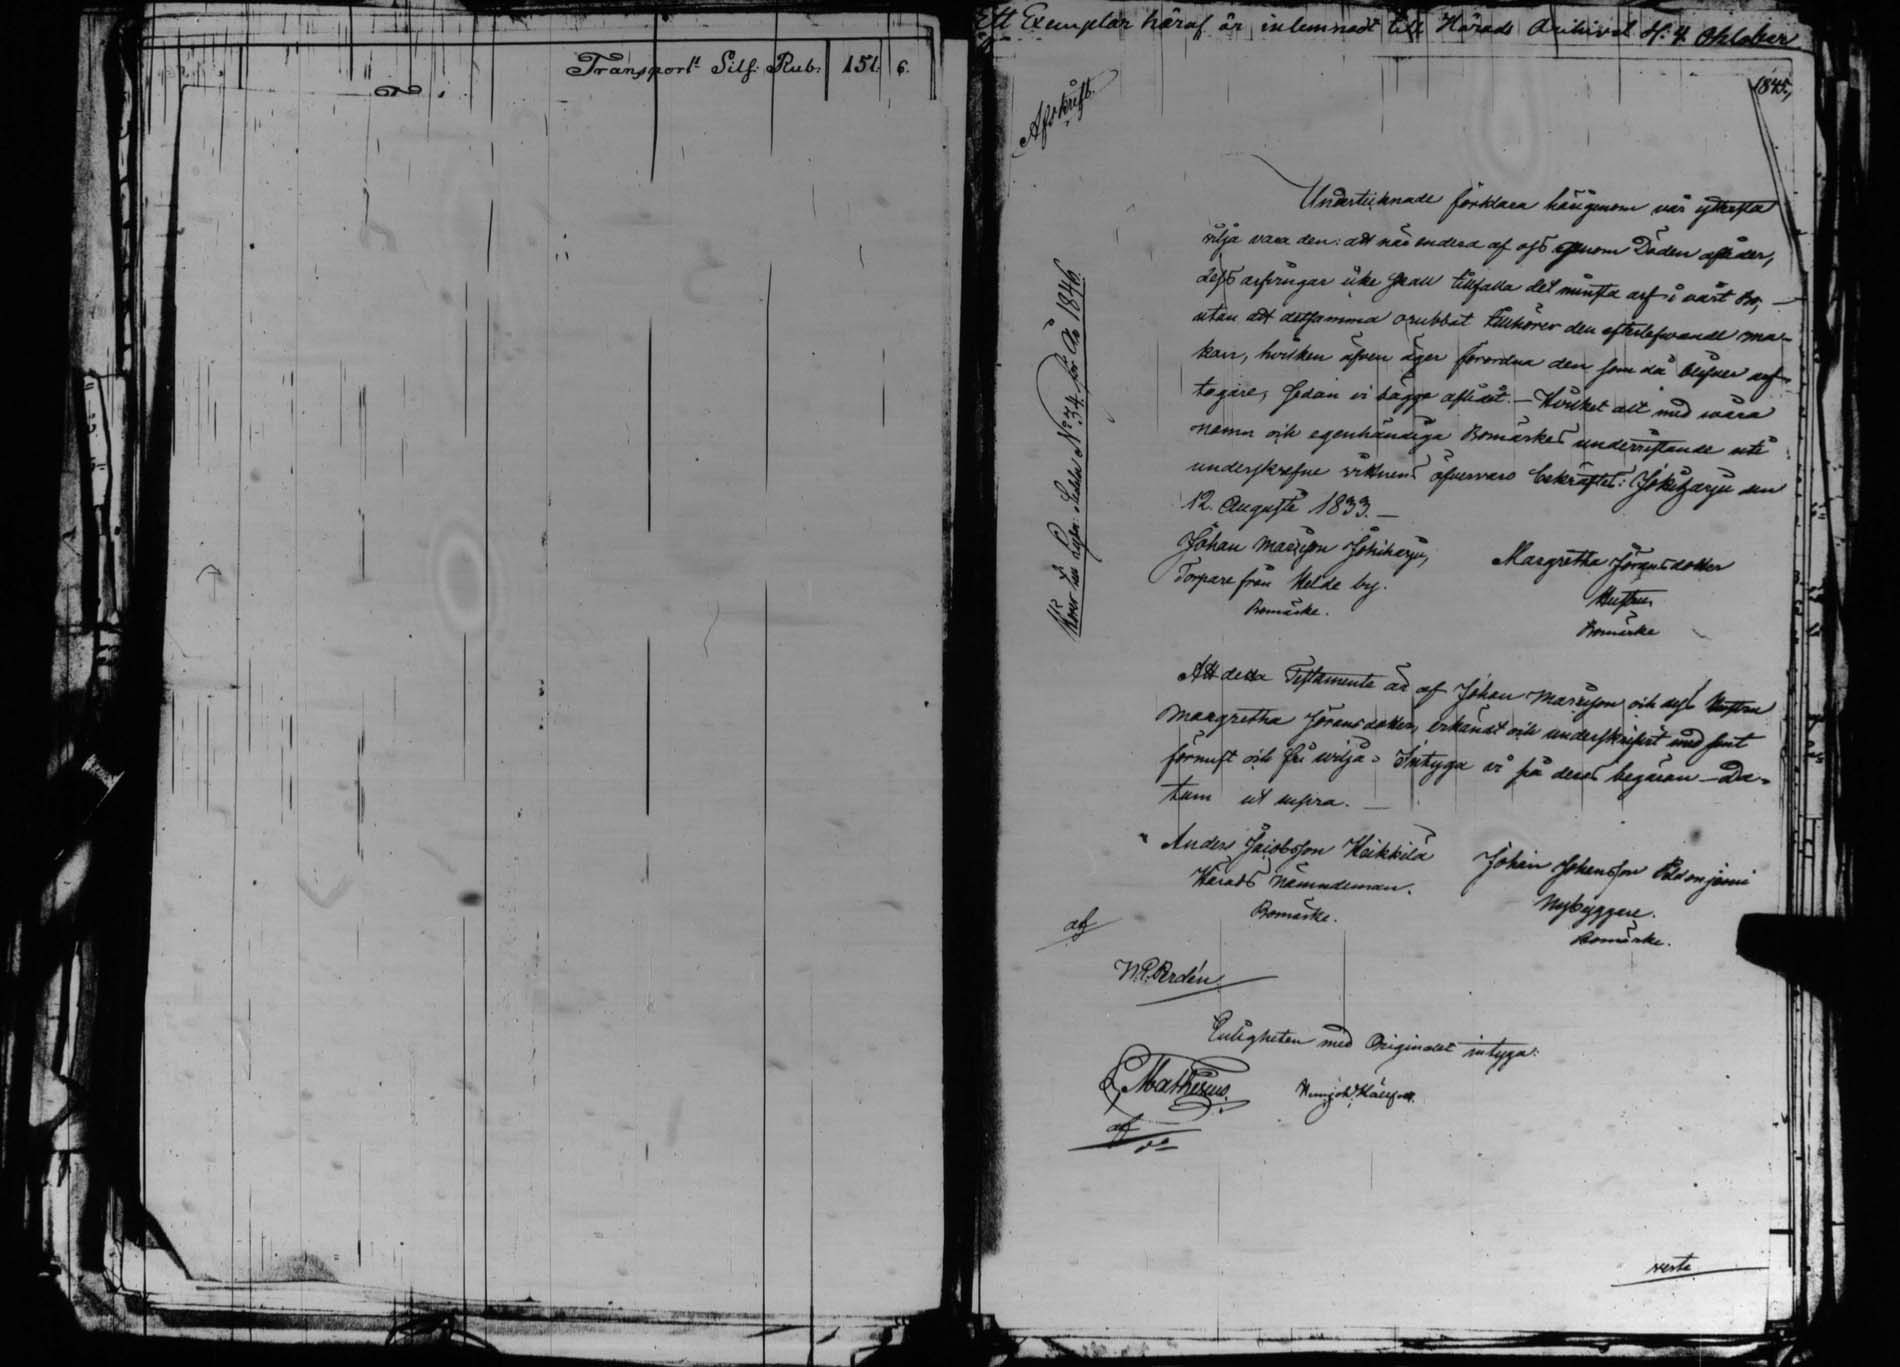 Transport Silf: Rub: 151. 6.
Ett Exemplar häraf är inlemnadt till Härads Archivet d. 4 Oktober
1845,
Afskrift
Undertecknade förklara härigenom vår yttersta
vilja vara den: att när endera af oss genom Döden aflider,
dess arfvingar icke skall tillfalla det minsta arf i vårt Bo,
utan att detsamma orubbat tillhörer den efterlefwande ma-
kan, hvilken äfven äger förordna den som då blifver arf-
tagare, sedan vi bägge aflidit. - Hvilket allt med våra
namn och egenhändiga Bomärkes underristande uti
underskrefne vittnens öfvervaro bekräftes: Jokiharju den
12. Augusti 1833. -
Johan Mattsson Jokiharju, Margretha Jöransdotter
Torpare från Helde by. Hustru
Bomärke. Bomärke
Att detta Testamente är af Johan Mattsson och dess Hustru
Margretha Jöransdotter, erkändt och underskrifvit med sunt
förnuft och fri vilja = Intyga vi på deras begäran - Da-
tum ut supra. -
Anders Jacobsson Heikkilä Johan Johansson
Härads Nämndeman. Nybyggare.
Bomärke. Bomärke.
Enligheten med Originalet intyga:
Mathesius
verte